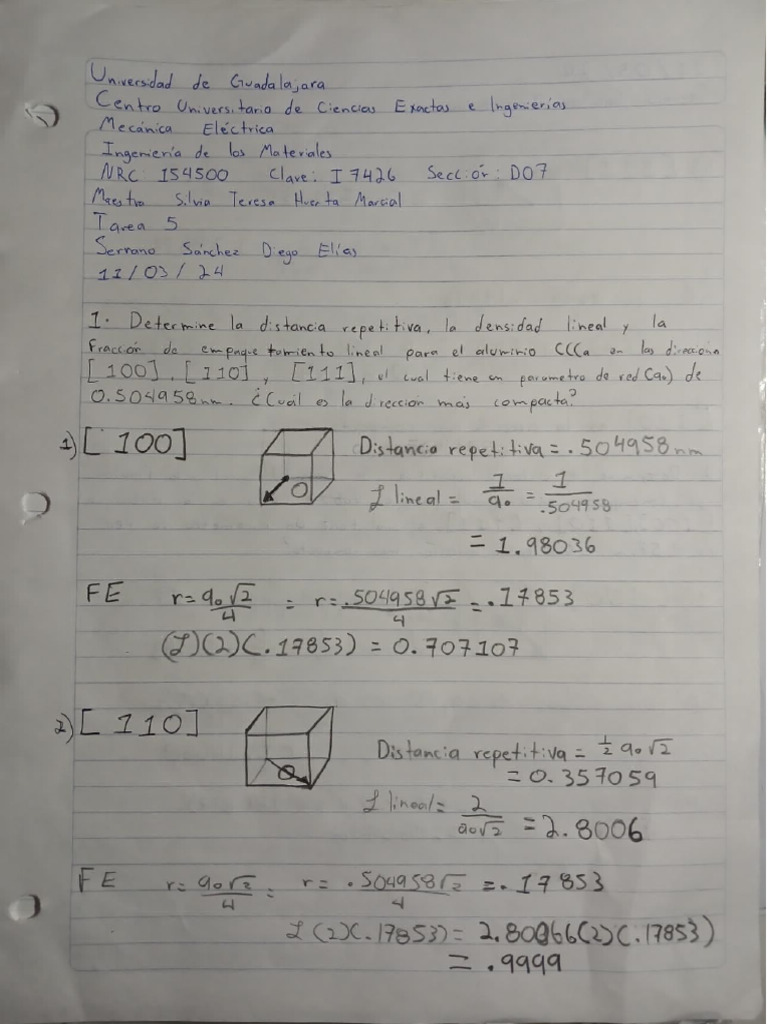 Universidad de Guadalajara
Centro Universitario de Ciencias Exactas e Ingenierías
Mecánica Eléctrica
Ingeniería de los Materiales
NRC: 154500 Clave: I7426 Sección: D07
Maestro Silvia Teresa Huerta Marcial
Tarea 5
Serrano Sánchez Diego Elías
11/03/24
1. Determine la distancia repetitiva, la densidad lineal y la
fracción de empaquetamiento lineal para el aluminio CCCa en las direcciona
[100], [110], [111], el cual tiene un parametro de red (a₀) de
0.504958nm. ¿Cuál es la dirección más compacta?
1) [100] Distancia repetitiva = .504958nm
L lineal = 1/a₀ = 1/.504958
= 1.98036
FE r = a₀√2/4 = r = .504958√2/4 = .17853
(L)(2)(.17853) = 0.707107
2) [110]
Distancia repetitiva = ½ a₀√2
= 0.357059
L lineal = 2/a₀√2 = 2.8006
FE r = a₀√2/4 = r = .504958√2/4 = .17853
L(2)(.17853) = 2.80066(2)(.17853)
= .9999